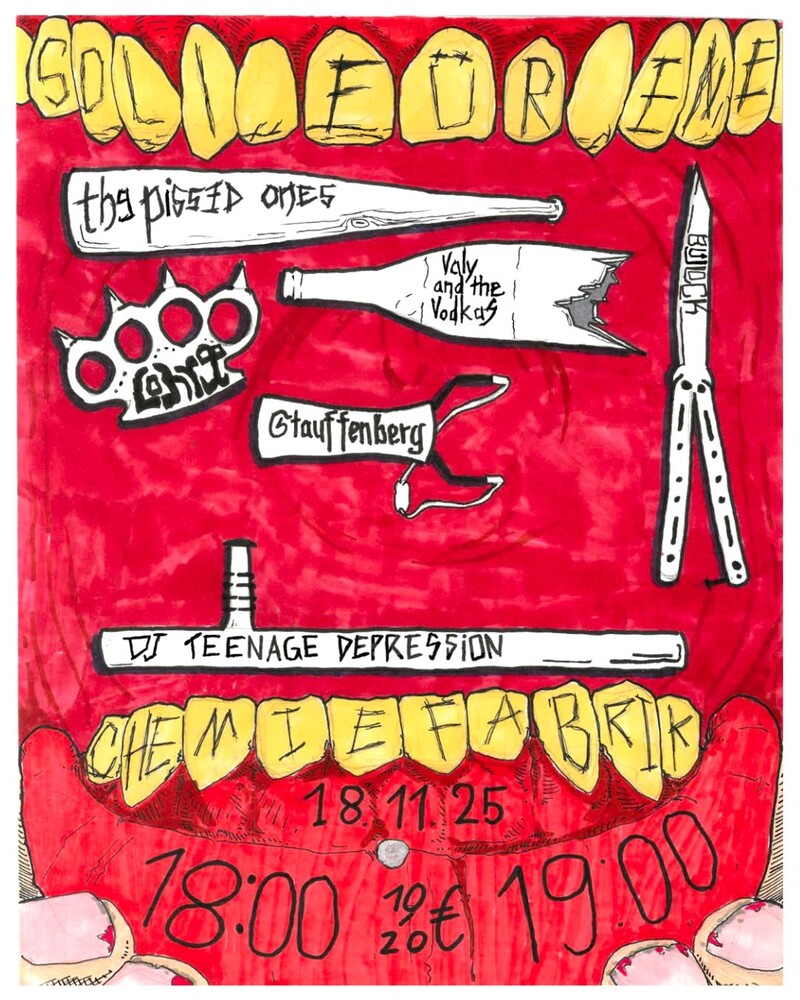 SOLI FÜR EINE
thg pissED ONES
Vgly
and the
Vodkas
Stauffenberg
DJ TEENAGE DEPRESSION
CHEMIEFABRIK
18.11.25
18:00 10/20€ 19:00